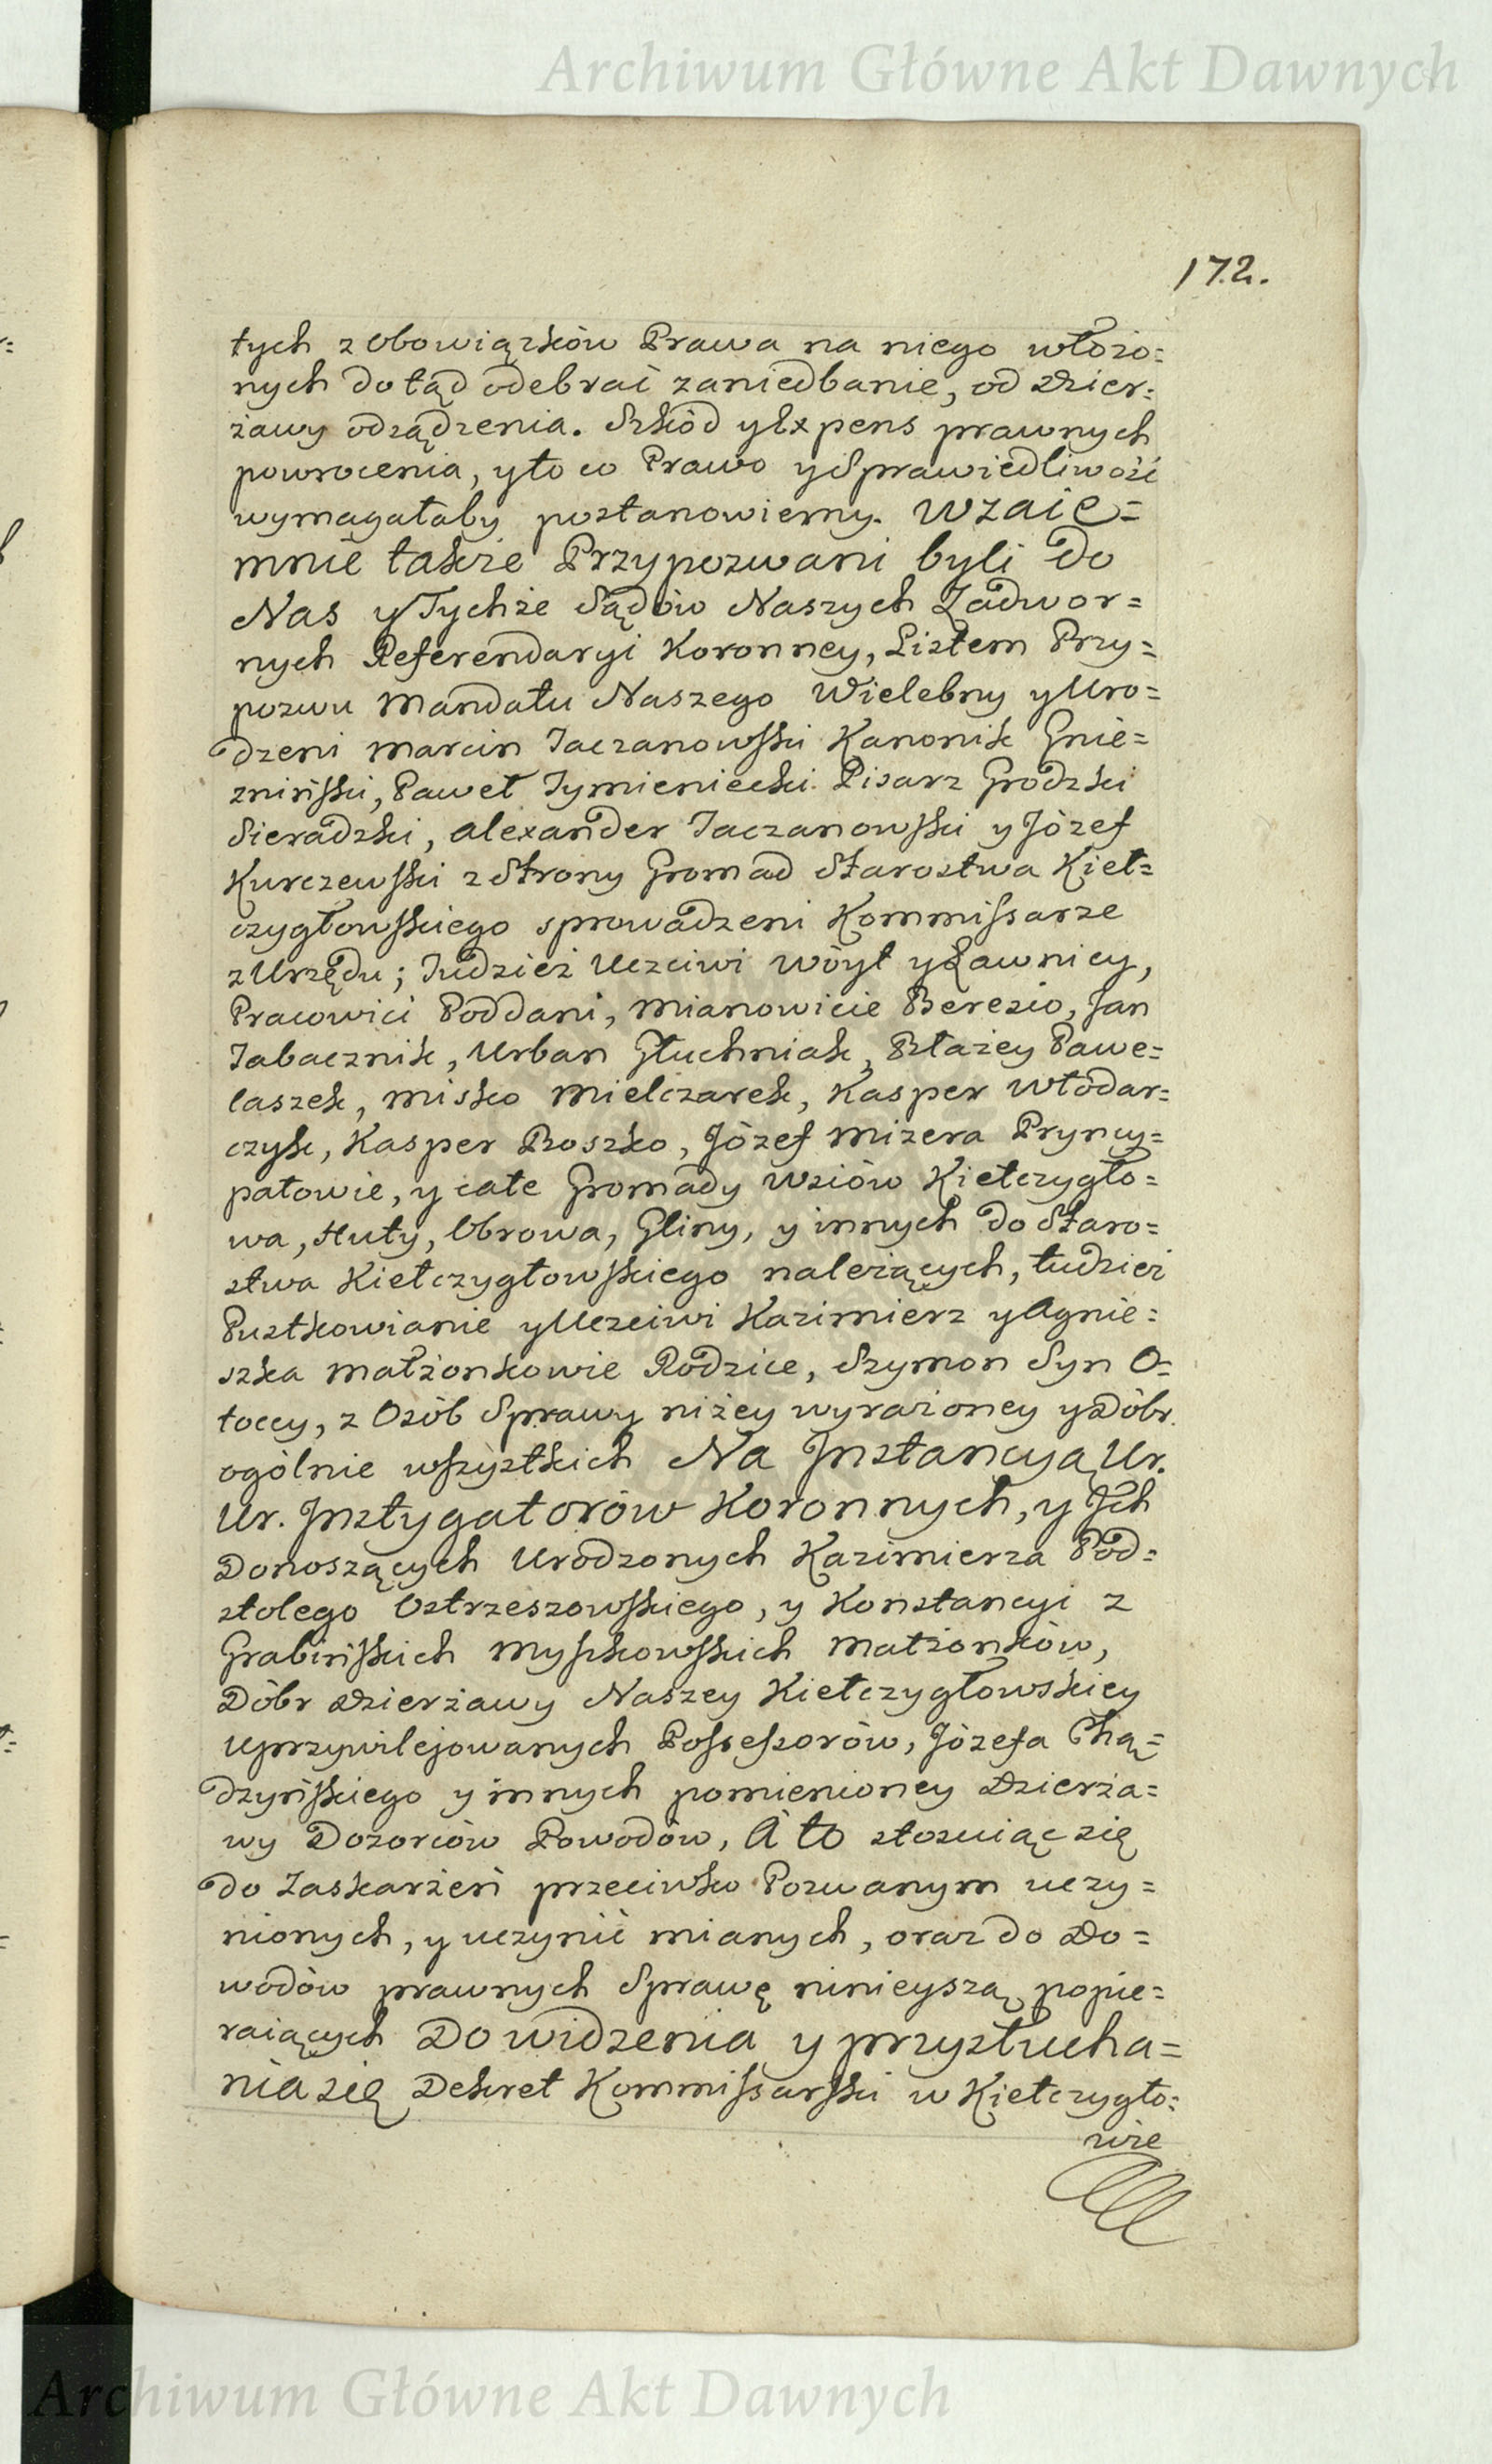 Archiwum Główne Akt Dawnych
172.
tych z Obowiązków Prawa na niego włożo=
nych dotąd odebrać zaniedbanie, od Dzier=
żawy odsądzenia. Szkód y Expens prawnych
powrocenia, y to co Prawo y Sprawiedliwość
wymagałaby postanowiemy. Wzaie=
mnie także Przypozwani byli do
Nas y Tychże Sądów Naszych Zadwor=
nych Referendaryi Koronney, Listem Przy=
pozwu Mandatu Naszego Wielebny y Uro=
dzeni Marcin Taczanowski Kanonik Gnie=
zniński, Paweł Tymieniecki Pisarz Grodzki
Sieradzki, Alexander Taczanowski y Józef
Kurczewski z Strony Gromad Starostwa Kieł=
czygłowskiego sprowadzeni Kommissarze
z Urzędu; Tudzież Uczciwi Wóyt y Ławnicy,
Pracowici Poddani, mianowicie Beresio, Jan
Tabacznik, Urban Głuchniak, Błażey Pawe=
laszek, Misko Mielczarek, Kasper Włodar=
czyk, Kasper Roszko, Józef Mizera Pryncy=
pałowie, y całe Gromady Wsiów Kiełczygło=
wa, Huty, Obrowa, Gliny, y innych do Staro=
stwa Kiełczygłowskiego należących, tudzież
Pustkowianie y Uczciwi Kazimierz y Agnie=
szka Małżonkowie Rodzice, Szymon Syn O=
toccy, z Osób Sprawy niżey wyrażoney y Dóbr
ogólnie wszystkich Na Instancyą Ur.
Ur. Instygatorów Koronnych, y Ich
Donoszących Urodzonych Kazimierza Pod=
stolego Ostrzeszowskiego, y Konstancyi z
Grabińskich Myszkowskich Małżonków,
Dóbr Dzierżawy Naszey Kiełczygłowskiey
Uprzywilejowanych Possessorów, Józefa Chą=
dzyńskiego y innych pomienioney Dzierża=
wy Dozorców Powodów, A to stosuiąc się
do Zaskarżeń przeciwko Pozwanym uczy=
nionych, y uczynić mianych, oraz do Do=
wodów prawnych Sprawę ninieyszą popie=
raiących Do widzenia y przysłucha=
nia się Dekret Kommissarski w Kiełczygło=
wie
Archiwum Główne Akt Dawnych